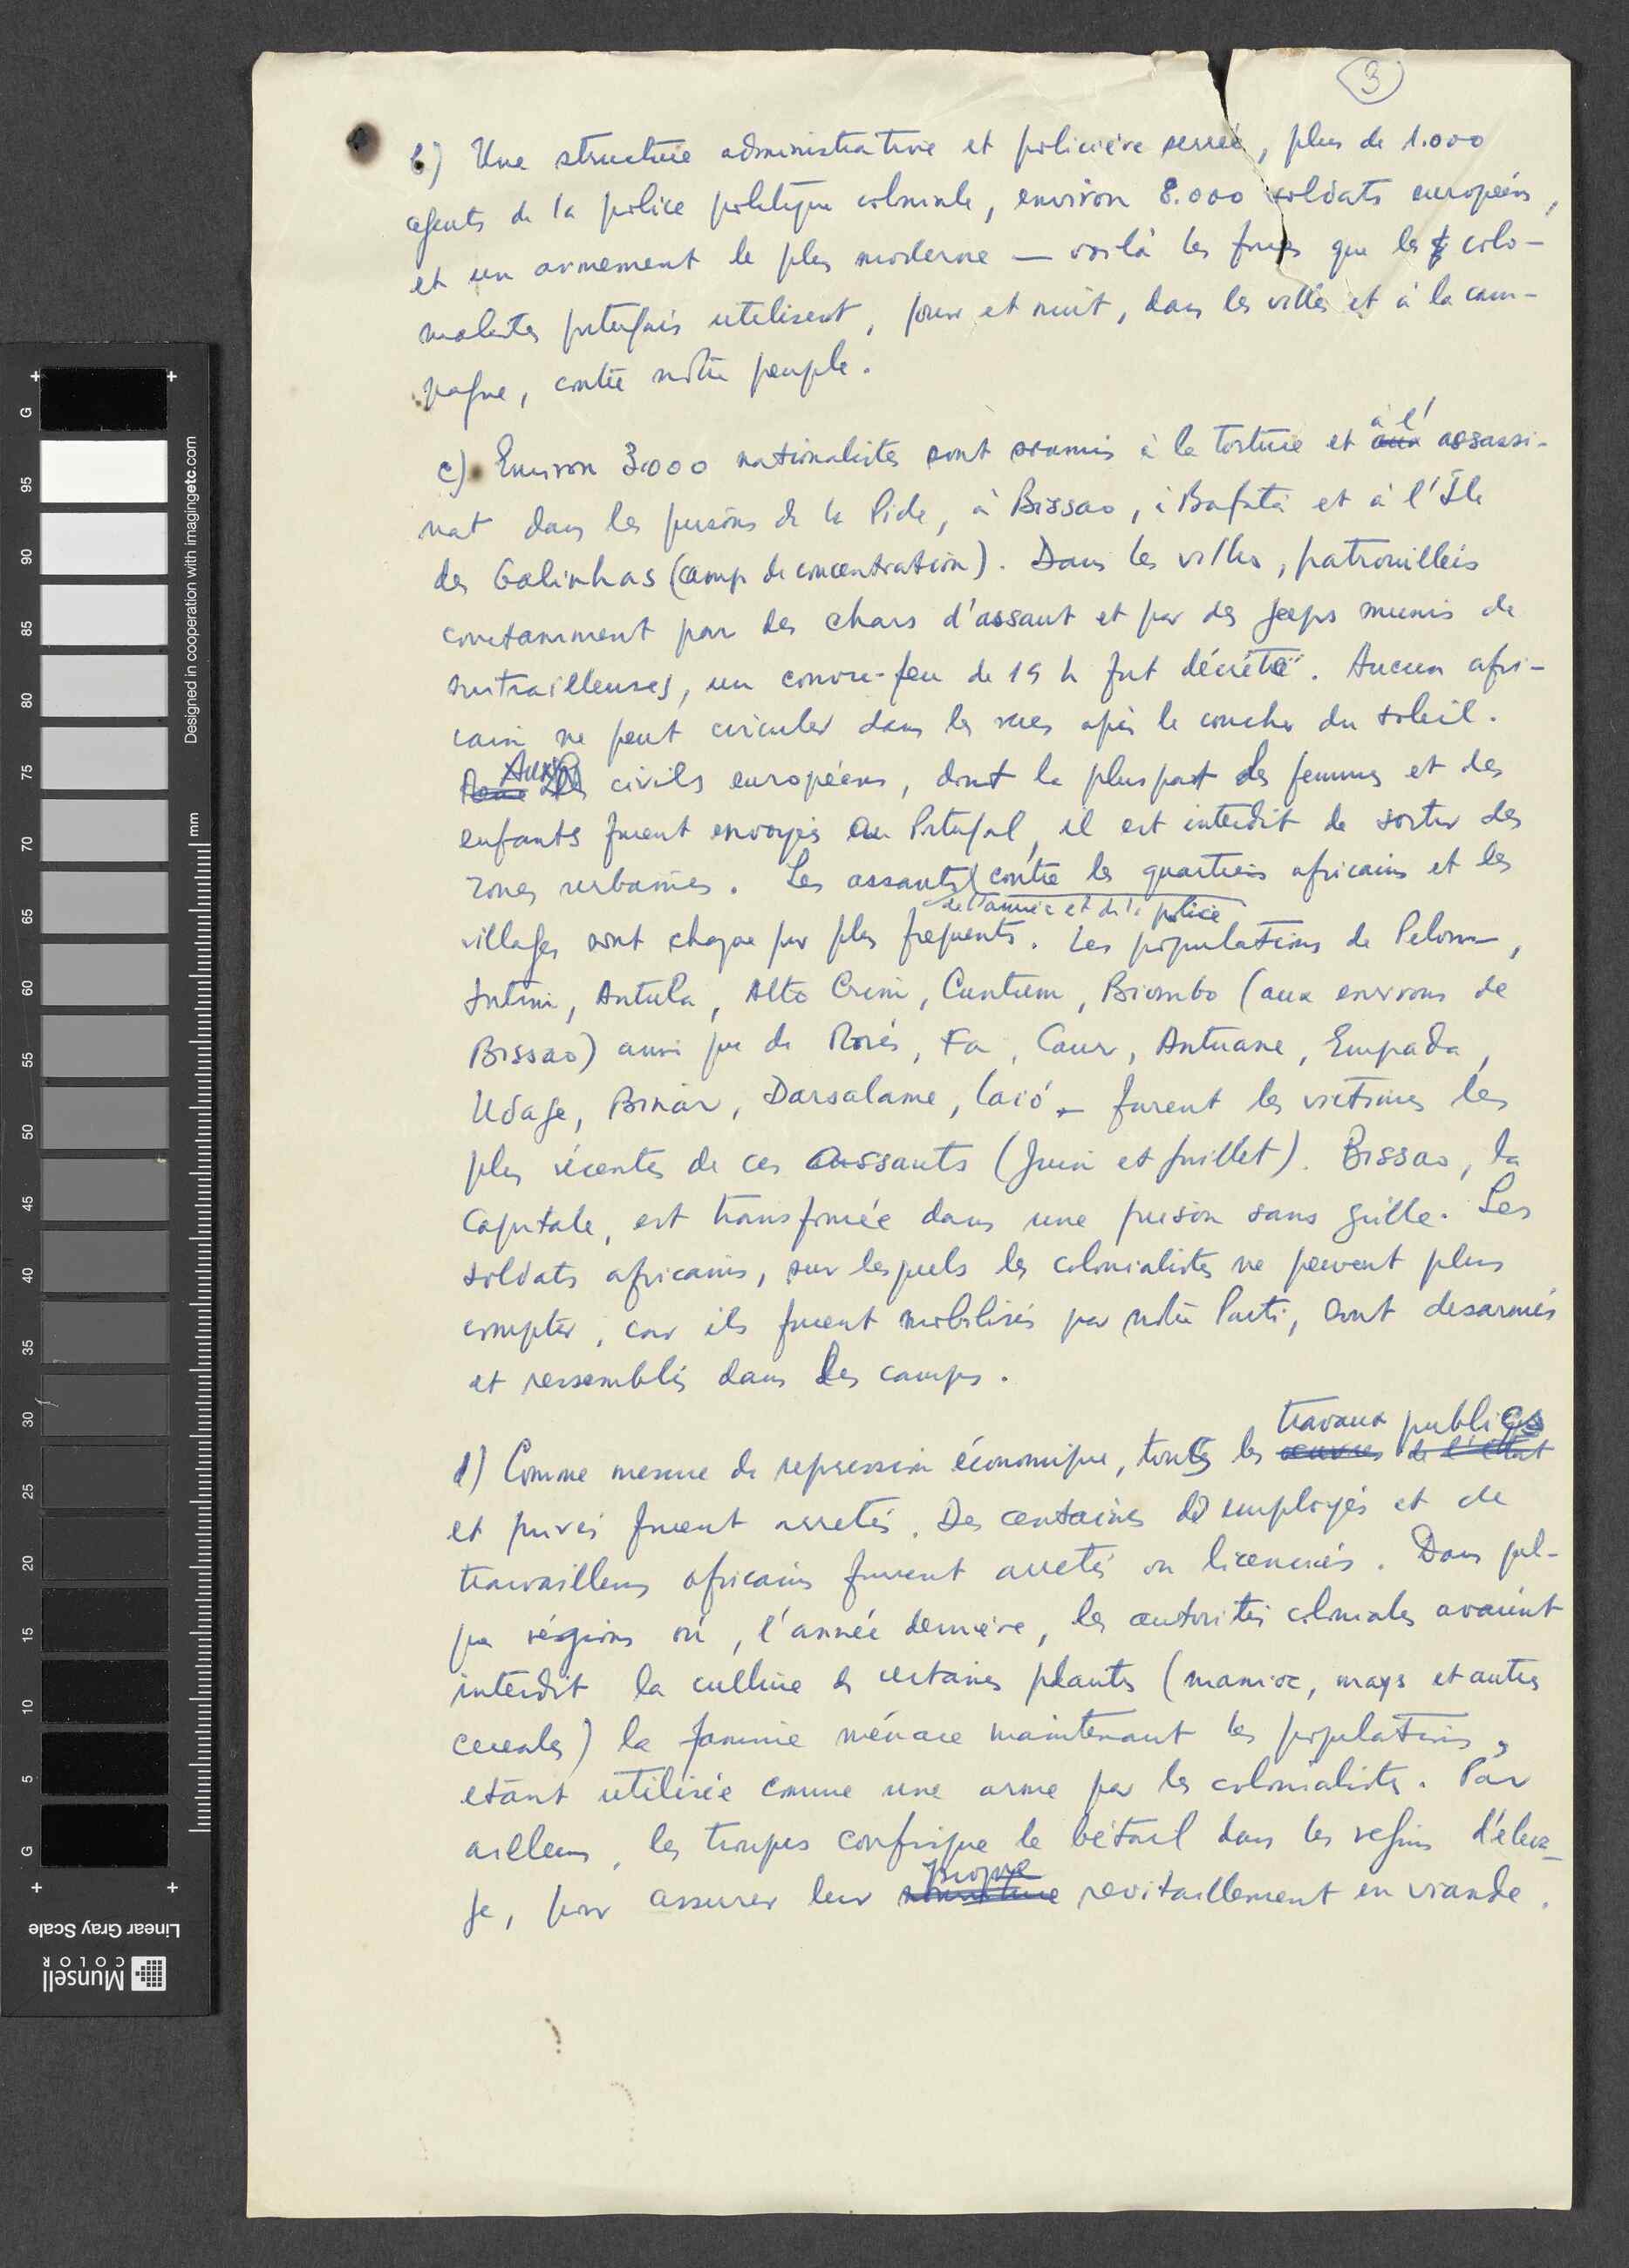 3
b) Une structure administrative et policière serrée, plus de 1.000
agents de la police politique coloniale, environ 8.000 soldats européens,
et un armement le plus moderne — voilà les forces que les colo-
nialistes portugais utilisent, jour et nuit, dans les villes et à la cam-
pagne, contre notre peuple.
c) Environ 3000 nationalistes sont soumis à la torture et aux à l' assassi-
nat dans les prisons de la Pide, à Bissao, à Bafatá et à l'Île
des Galinhas (camp de concentration). Dans les villes, patrouillées
constamment par des chars d'assaut et par des jeeps munis de
mitrailleuses, un couvre-feu de 19 h fut décrété. Aucun afri-
cain ne peut circuler dans les rues après le coucher du soleil.
Aux civils européens, dont la pluspart des femmes et des
enfants furent envoyés au Portugal, il est interdit de sortir des
zones urbaines. Les assauts contre les quartiers africains et les
de l'armée et de la police
villages sont chaque jour plus frequents. Les populations de Pelom,
Intim, Antula, Alto Crim, Cuntum, Biombo (aux environs de
Bissao) aussi que de Morés, Fa, Caur, Antuane, Empada,
Udage, Binar, Darsalame, Caió — furent les victimes les
plus récentes de ces assauts (Juin et Juillet). Bissao, la
Capitale, est transformée dans une prison sans grille. Les
soldats africains, sur lesquels les colonialistes ne peuvent plus
compter, car ils furent mobilisés par notre Parti, sont desarmés
et ressemblés dans des camps.
travaux publics
d) Comme mesure de repression économique, touts les oeuvres de l'état
et privés furent arretés. Des centaines de employés et de
travailleurs africains furent arretés ou licenciés. Dans quel-
que régions où, l'année dernière, les autorités coloniales avaient
interdit la culture de certaines plantes (manioc, mays et autres
cereales) la famine ménace maintenant les populations,
etant utilisée comme une arme par les colonialistes. Par
ailleurs, les troupes confisque le bétail dans les regions d'éleva-
ge, pour assurer leur propre revitaillement en viande.
Designed in cooperation with imagingetc.com
mm
G
95
90
85
80
75
70
65
60
55
50
45
40
35
30
25
20
15
10
5
G
Linear Gray Scale
Munsell
COLOR